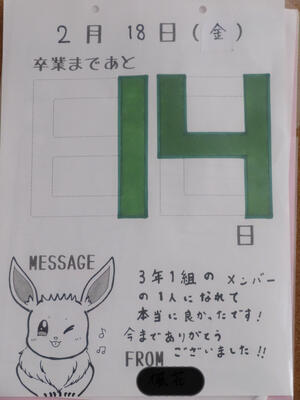 2月18日(金)
卒業まであと
14
日
MESSAGE
3年1組のメンバー
の1人になれて
本当に良かったです!
今までありがとう
ございました!!
FROM